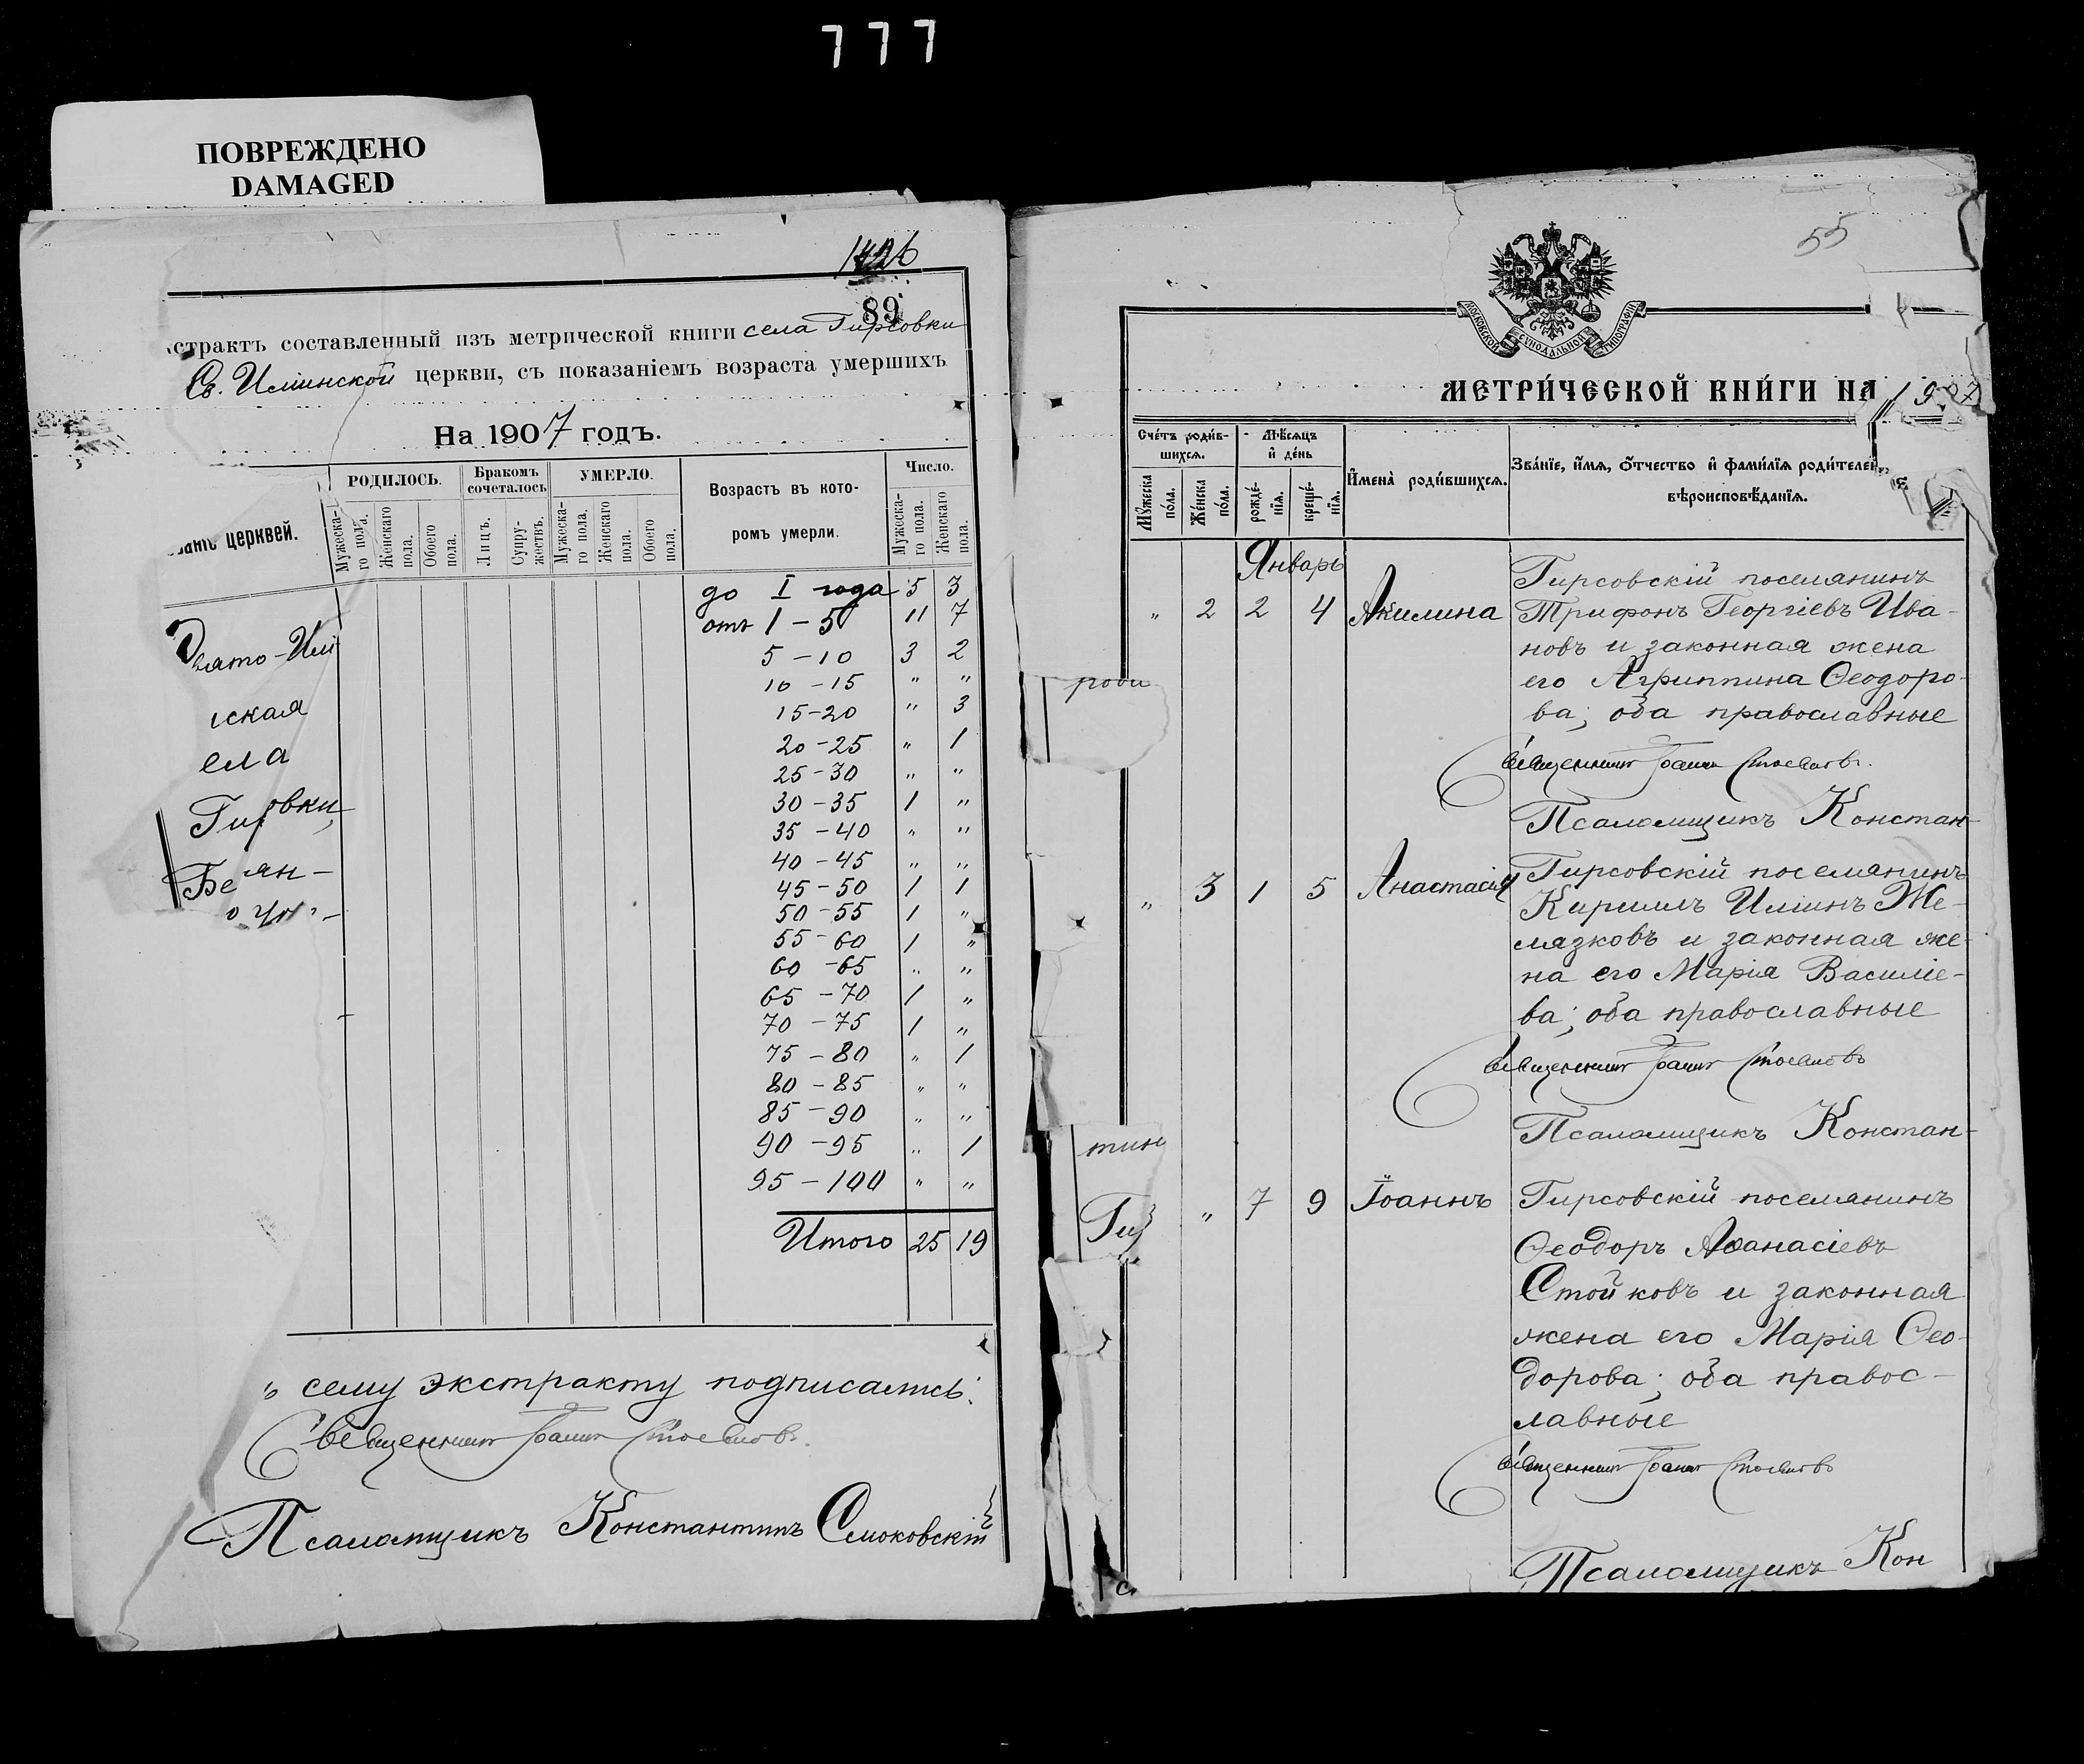 777
ПОВРЕЖДЕНО
DAMAGED
89
страктъ составленный изъ метрической книги села Гирсовки
Св. Илiинской церкви, съ показанiемъ возраста умершихъ
На 1907 годъ.
церквей.
РОДИЛОСЬ.
Мужеска-го пола.
Женскаго пола.
Обоего пола.
Бракомъ сочеталось
Лицъ.
Супру-жествъ.
УМЕРЛО.
Мужеска-го пола.
Женскаго пола.
Обоего пола.
Возрастъ въ кото-
ромъ умерли.
Число.
Мужеска-го пола.
Женскаго пола.
до I года 5 3
отъ 1 – 5 11 7
5 – 10 3 2
10 – 15 " "
15 – 20 " 3
20 – 25 " 1
25 – 30 " "
30 – 35 1 "
35 – 40 " "
40 – 45 " "
45 – 50 1 1
50 – 55 1 "
55 – 60 1 "
60 – 65 " "
65 – 70 1 "
70 – 75 1 "
75 – 80 " 1
80 – 85 " "
85 – 90 " "
90 – 95 " 1
95 – 100 " "
Итого 25 19
вято-Илi
ская
ела
Гировки,
сему экстракту подписались:
Священникъ Iоаннъ Стоиковъ.
Псаломщикъ Константинъ Смоковскiй
55
МОСКОВСКОЙ СѴНОДАЛЬНОЙ ТИПОГРАФІИ
МЕТРИ́ЧЕСКОЙ КНИ́ГИ НА 1907
Сче́тъ роди́в-
шихся.
Мѣ́сяцъ
и҆ де́нь
Му́жеска по́ла.
Же́нска по́ла.
рожде́-нїѧ.
креще́-нїѧ.
И҆мена̀ роди́вшихся.
Зва́нїе, и҆́мя, ѻ҆́тчество и҆ фами́лїя роди́телей,
вѣроисповѣ́данїя.
Январь
" 2 2 4 Акилина
Гирсовскiй поселянинъ
Трифонъ Георгiевъ Ива-
новъ и законная жена
его Агриппина Ѳеодоро-
ва; оба православные
Священникъ Iоаннъ Стоиковъ.
Псаломщикъ Констан-
" 3 1 5 Анастасiя
Гирсовскiй поселянинъ
Кириллъ Илiинъ Же-
лязковъ и законная же-
на его Марiя Василiе-
ва; оба православные
Священникъ Iоаннъ Стоиковъ
Псаломщикъ Констан-
тин
" 7 9 Iоаннъ
Гирсовскiй поселянинъ
Ѳеодоръ Аѳанасiевъ
Стойковъ и законная
жена его Марiя Ѳео-
дорова; оба правос-
лавные
Священникъ Iоаннъ Стоиковъ
Псаломщикъ Кон